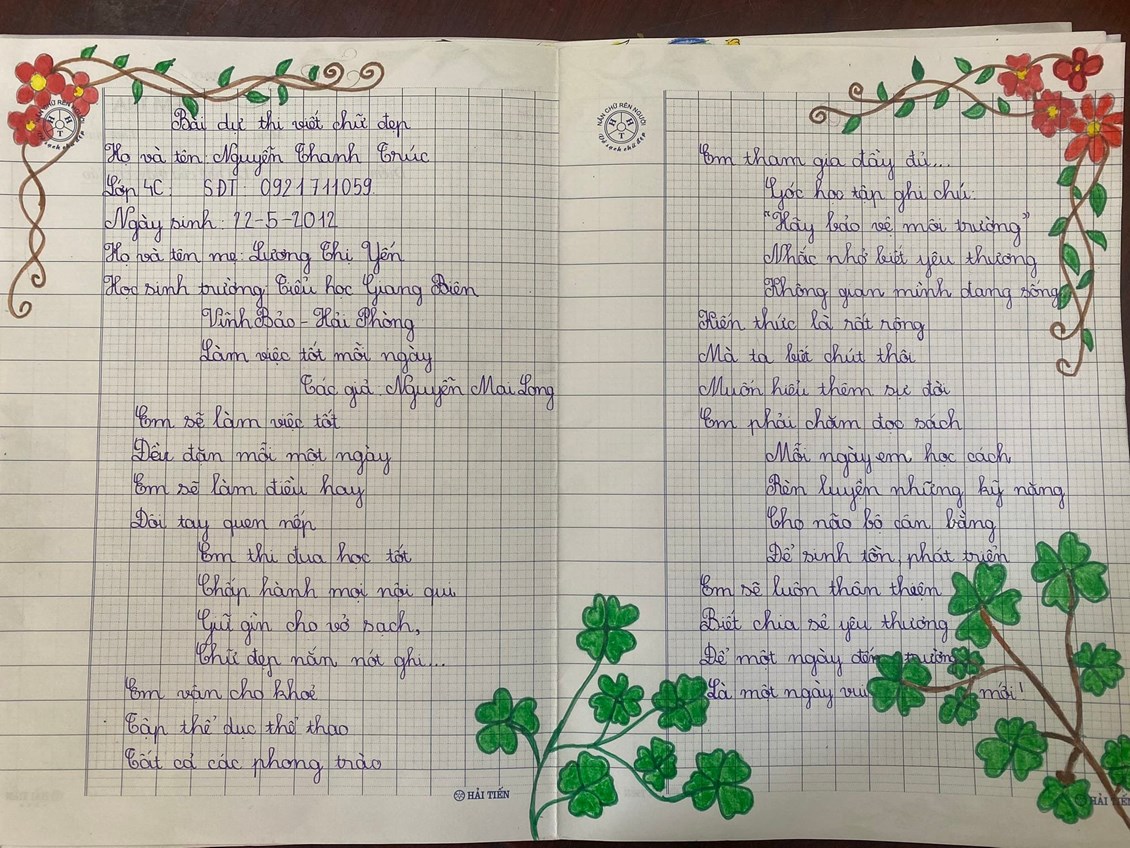 Bài dự thi viết chữ đẹp
Họ và tên: Nguyễn Thanh Trúc
Lớp 4C: SDT: 0921711059.
Ngày sinh: 22-5-2012
Họ và tên mẹ: Lương Thị Yến
Học sinh trường: Tiểu học Giang Biên
Vĩnh Bảo - Hải Phòng
Làm việc tốt mỗi ngày
Tác giả: Nguyễn Mai Long
Em sẽ làm việc tốt
Đều đặn mỗi một ngày
Em sẽ làm điều hay
Đôi tay quen nếp
Em thi đua học tốt
Chấp hành mọi nội qui
Giữ gìn cho vở sạch,
Chữ đẹp nắn nót ghi...
Em vận cho khoẻ
Tập thể dục thể thao
Tất cả các phong trào
HẢI TIẾN
NẮN CHỮ RÈN NGƯỜI
H H
T
Vở sạch chữ đẹp
Em tham gia đầy đủ...
Góc học tập ghi chú:
"Hãy bảo vệ môi trường"
Nhắc nhở biết yêu thương
Không gian mình đang sống
Kiến thức là rất rộng
Mà ta biết chút thôi
Muốn hiểu thêm sự đời
Em phải chăm đọc sách
Mỗi ngày em học cách
Rèn luyện những kỹ năng
Cho não bộ cân bằng
Để sinh tồn, phát triển
Em sẽ luôn thân thiện
Biết chia sẻ yêu thương
Để một ngày đến trường
Là một ngày vui mới!
HẢI TIẾN